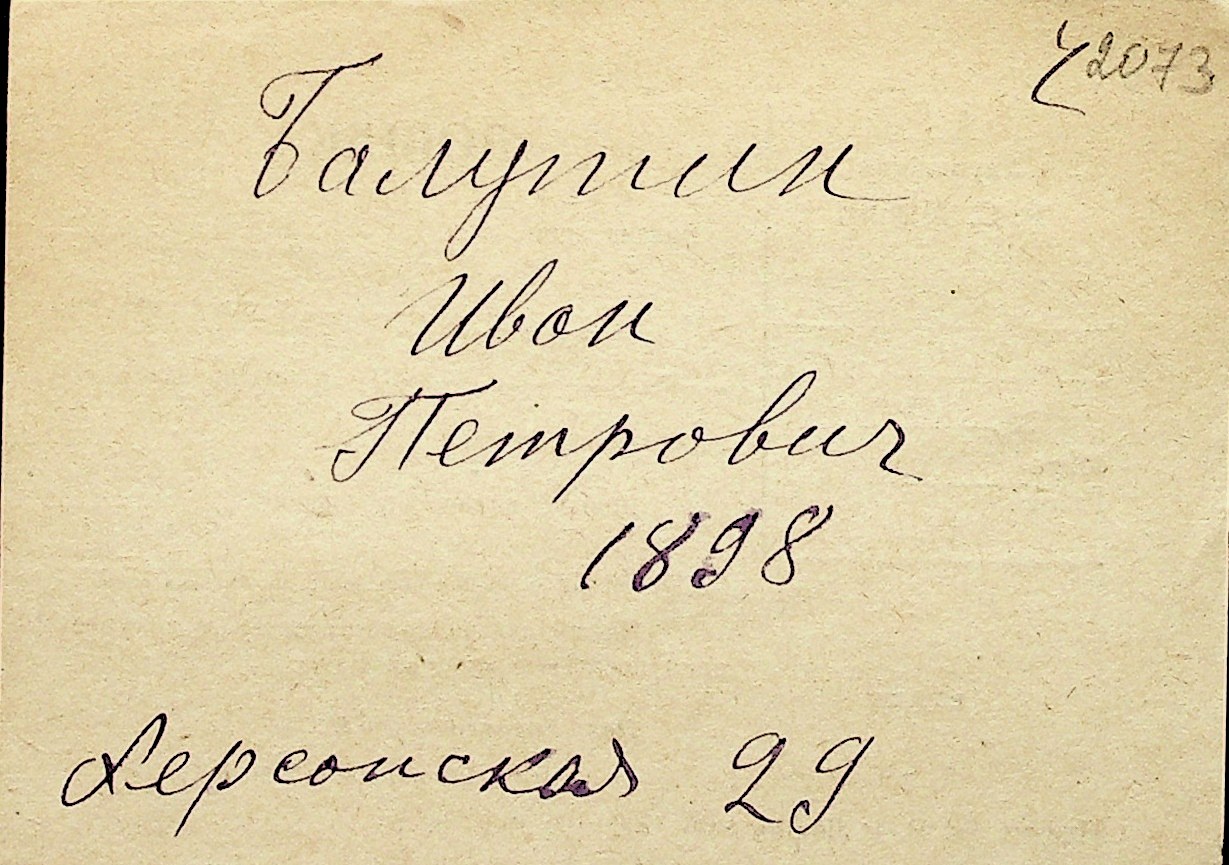 Ч2073
Балутин
Иван
Петрович
1898
Херсонская 29